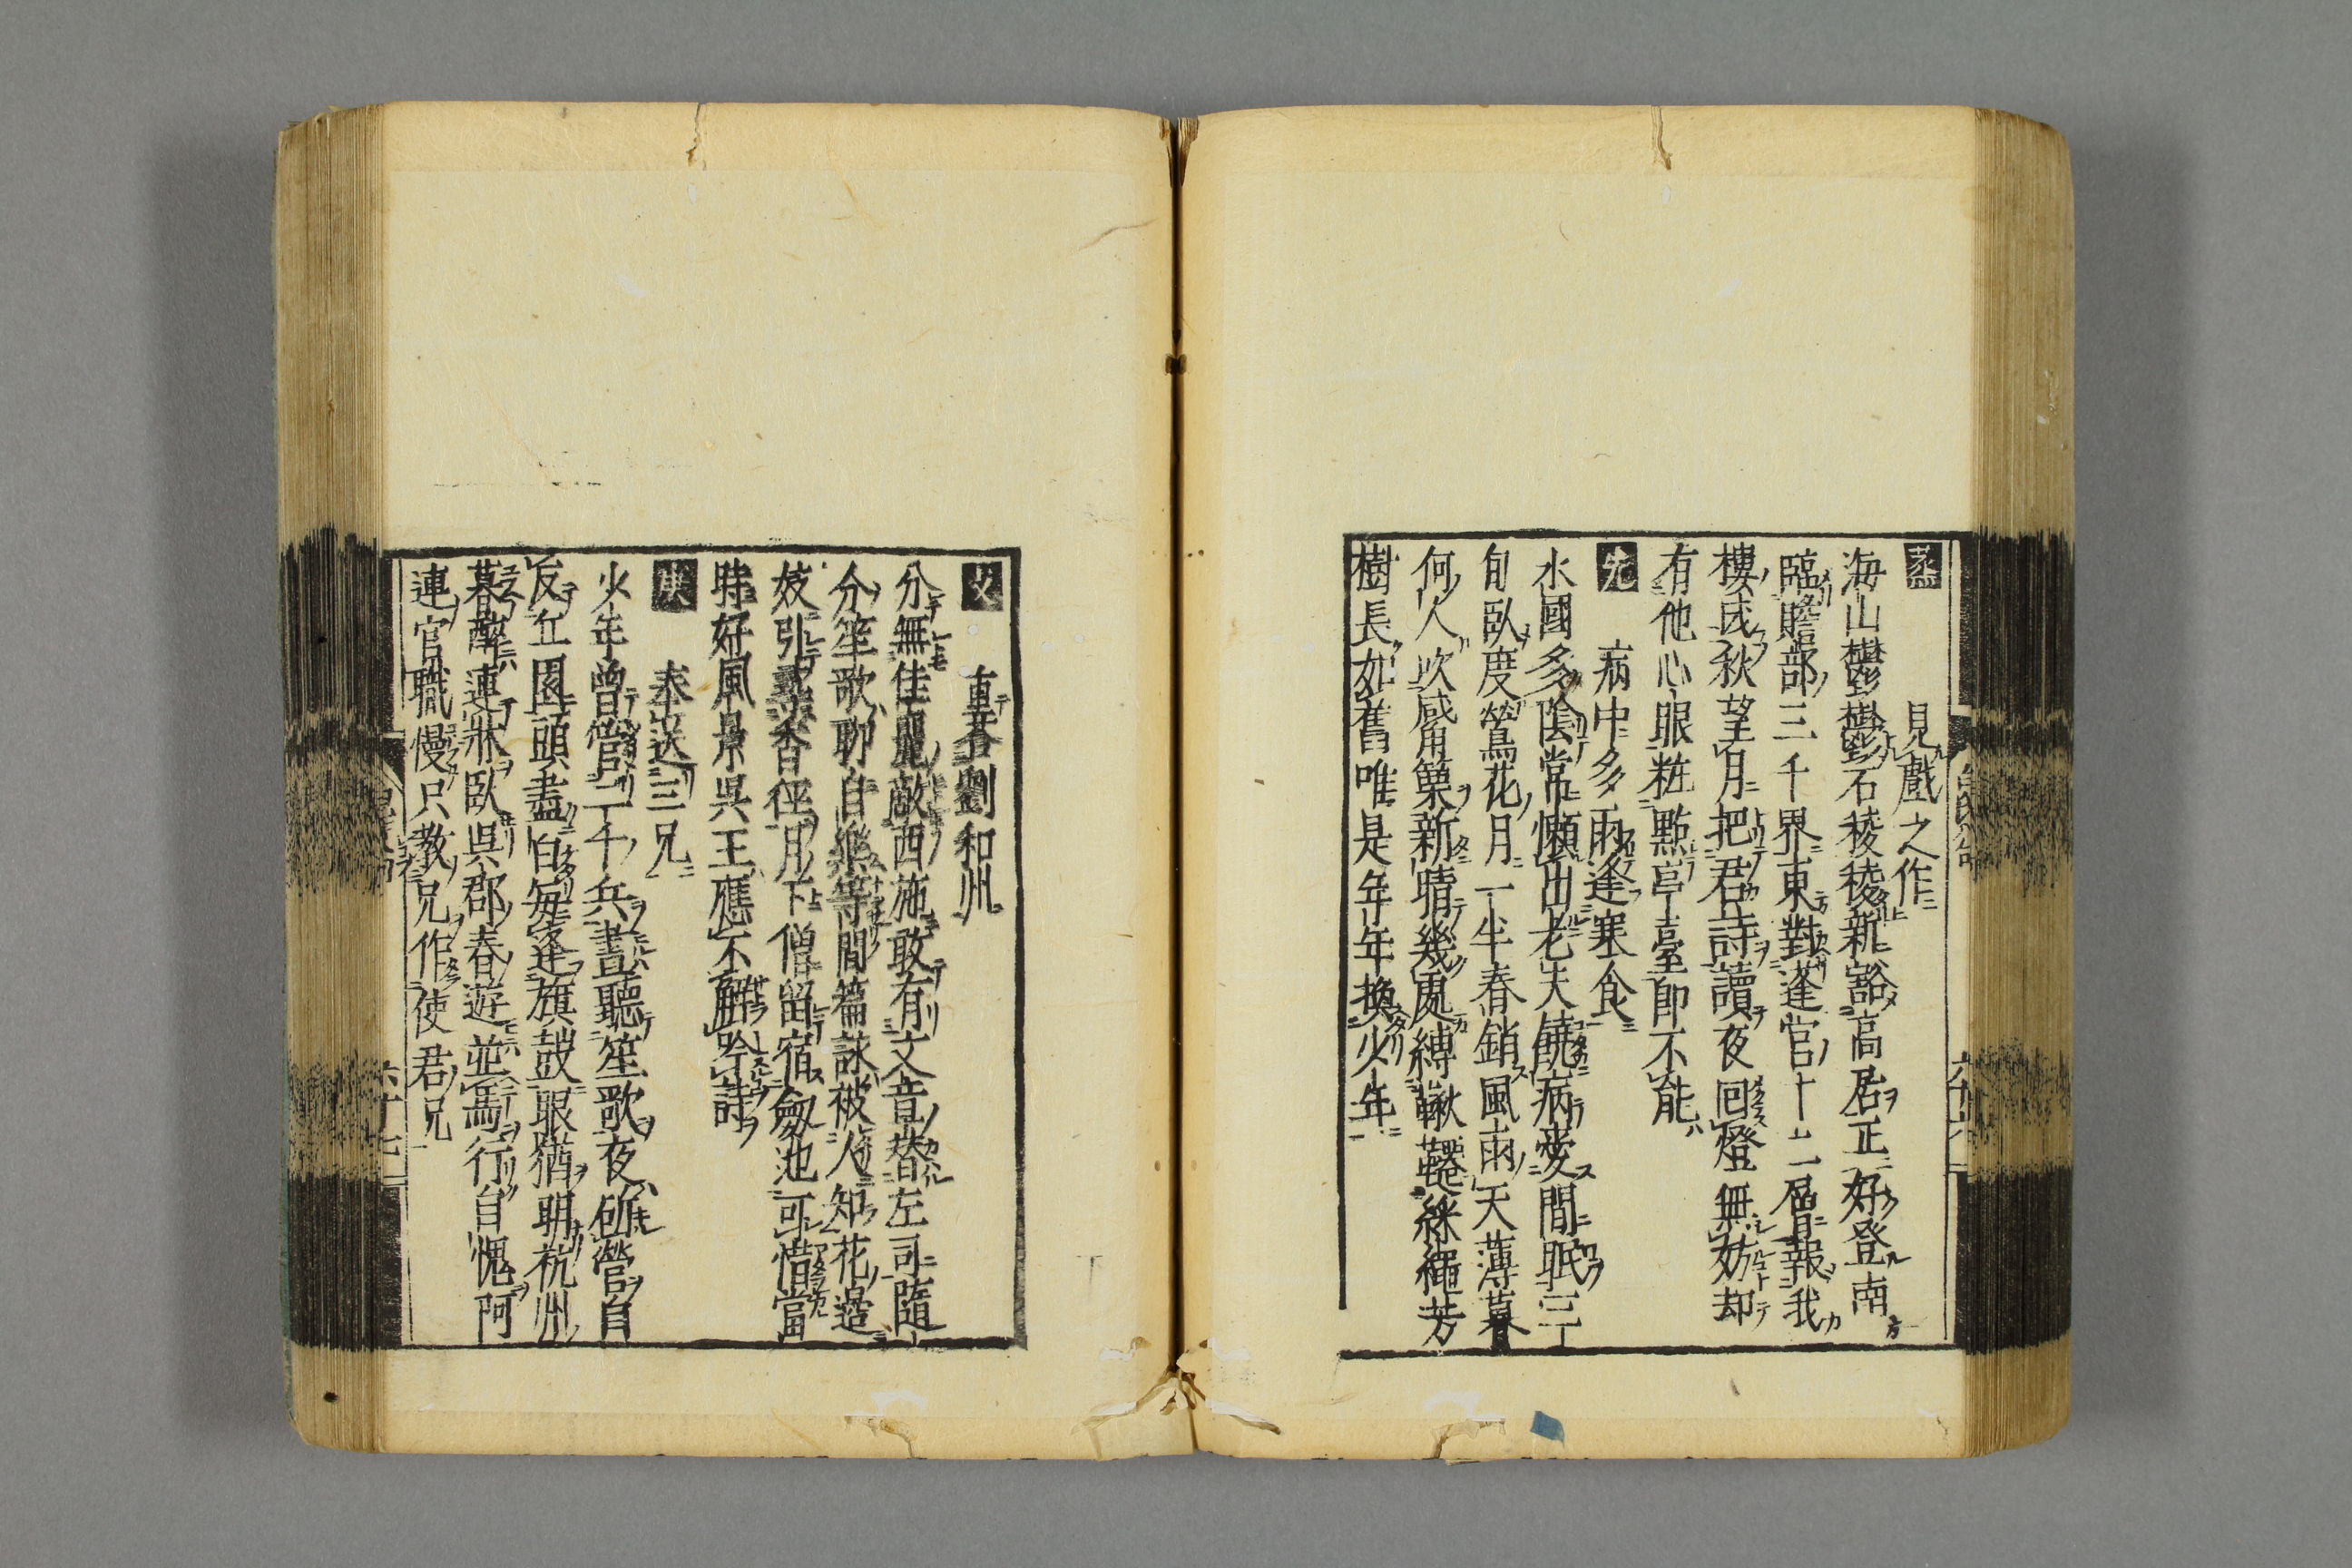 蒸　見戲之作
海山鬱鬱石稜稜新豁高居正好登南
臨贍部三千界東對蓬宮十二層報我
樓成秋望月把君詩讀夜回燈無妨却
有他心眼粧點亭臺即不能
先　病中多雨逢寒食
水國多陰常懶出老夫饒病愛閒眠三
旬臥度鶯花月一半春銷風雨天薄暮
何人吹觱篥新晴幾處縛鞦韆綵繩芳
樹長如舊唯是年年換少年
支　重荅劉和州
分無佳麗敵西施敢有文章替左司隨
分笙歌聊自樂等閒篇詠被人知花邊
妓引尋香徑月下僧留宿劔池可惜當
時好風景吳王應不解吟詩
庚　奉送三兄
少年曾管二千兵晝聽笙歌夜斫營自
反丘園頭盡白每逢旗鼓眼猶明杭州
暮醉連牀臥吳郡春遊並馬行自愧阿
連官職慢只教兄作使君兄